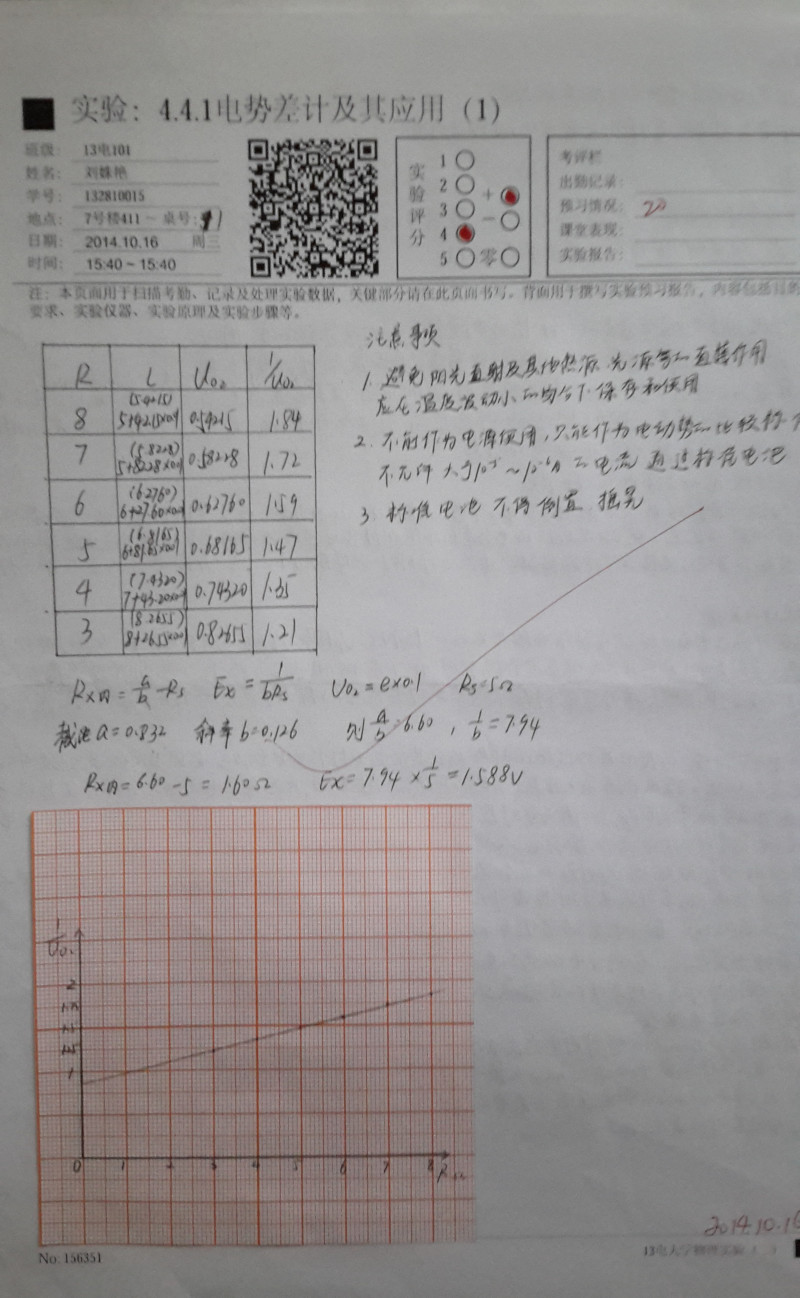 实验：4.4.1电势差计及其应用（1）
班级： 13电101
姓名： 刘姝艳
学号： 132810015
地点： 7号楼411 ~ 桌号：11
日期： 2014.10.16 周三
时间： 15:40 ~ 15:40
实验评分
1
2
3
4
5
+
−
零
考评栏
出勤记录：
预习情况： 20
课堂表现：
实验报告：
注：本页面用于扫描考勤、记录及处理实验数据，关键部分请在此页面书写。背面用于撰写实验预习报告，内容包括目的
要求、实验仪器、实验原理及实验步骤等。
R L U₀₂ 1/U₀₂
8 (5.4215) 5+42.15×0.01 0.54215 1.84
7 (5.8228) 5+82.28×0.01 0.58228 1.72
6 (6.2760) 6+27.60×0.01 0.62760 1.59
5 (6.8165) 6+81.65×0.01 0.68165 1.47
4 (7.4320) 7+43.20×0.01 0.74320 1.35
3 (8.2655) 8+26.55×0.01 0.82655 1.21
注意事项
1. 避免阳光直射及其他热源、光源等的直接作用
应在温度波动小的场合下保存和使用
2. 不能作为电源使用，只能作为电动势的比较标
不允许大于10⁻⁵~10⁻⁶A的电流通过标准电池
3. 标准电池不得倒置 摇晃
Rx内=a/b-Rs Ex=1/bRs U₀₂=e×0.1 Rs=5Ω
截距a=0.832 斜率b=0.126 则a/b=6.60，1/b=7.94
Rx内=6.60-5=1.60Ω Ex=7.94×1/5=1.588V
1/U₀₂
2
1.75
1.5
1.25
1
0 1 2 3 4 5 6 7 8 R/Ω
2014.10.16
No: 156351
13电大学物理实验